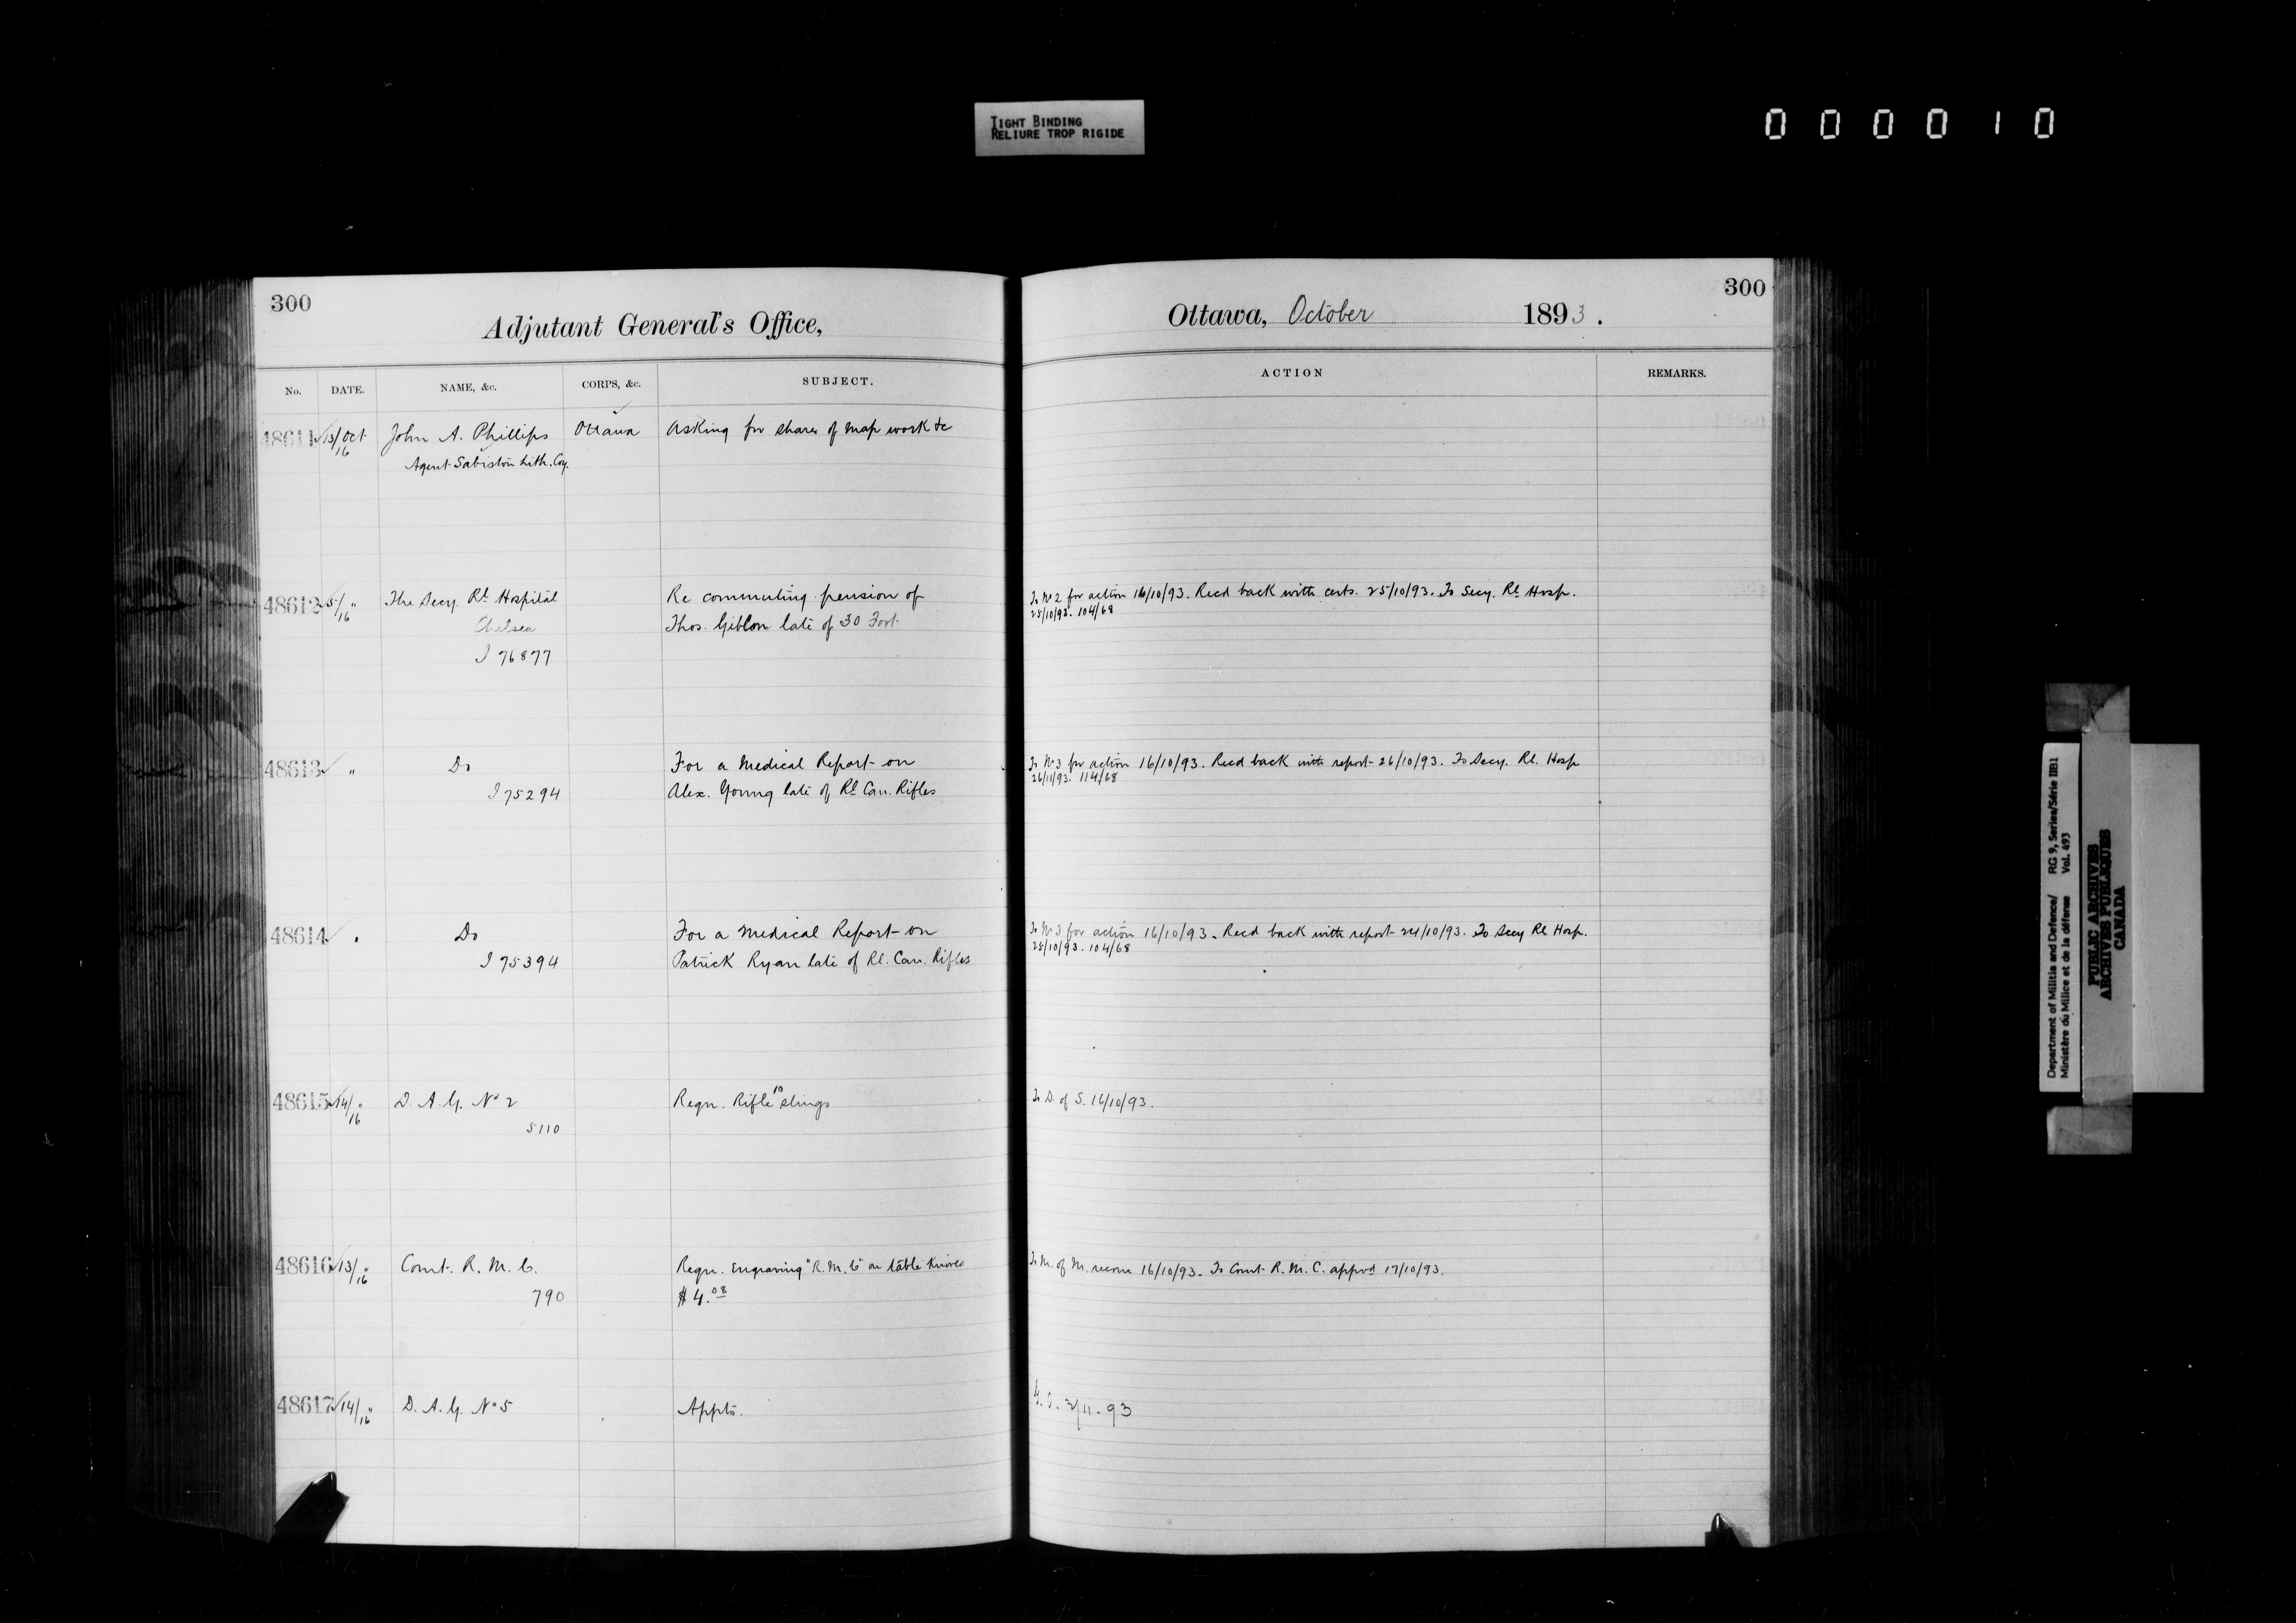 TIGHT BINDING
RELIURE TROP RIGIDE
000010
300
Adjutant General's Office,
No. DATE. NAME, &c. CORPS, &c. SUBJECT.
48611 13/Oct John A. Phillips Ottawa Asking for share of map work &c
16 Agent Sabiston Lith. Coy.
48612 5/16 " The Secy. Rl Hospital Re commuting pension of
Chelsea Thos. Gibbon late of 30 Foot
I 76877
48613 " Do For a Medical Report on
I 75294 Alex. Young late of Rl Can. Rifles
48614 " Do For a Medical Report on
I 75394 Patrick Ryan late of Rl. Can. Rifles
48615 14/16 " D. A. G. No 2 Reqn. Rifle 10 slings
5110
48616 13/16 " Comt. R. M. C. Reqn. Engraving "R.M.C" on table knives
790 $4.08
48617 14/16 " D. A. G. No 5 Appts.
300
Ottawa, October 1893.
ACTION REMARKS.
To No 2 for action 16/10/93. Recd back with certs. 25/10/93. To Secy. Rl Hosp.
25/10/93. 104/68
To No 3 for action 16/10/93. Recd back with report 26/10/93. To Secy. Rl. Hosp
26/11/93. 114/68
To No 3 for action 16/10/93. Recd back with report 24/10/93. To Secy Rl Hosp.
25/10/93. 104/68
To D. of S. 16/10/93.
To M. of M. recom 16/10/93. To Comt R. M. C. appvd 17/10/93.
G. O. 3/11-93
Department of Militia and Defence/ RG 9, Series/Série IIB1
Ministère du Milice et de la défense Vol. 493
PUBLIC ARCHIVES
ARCHIVES PUBLIQUES
CANADA